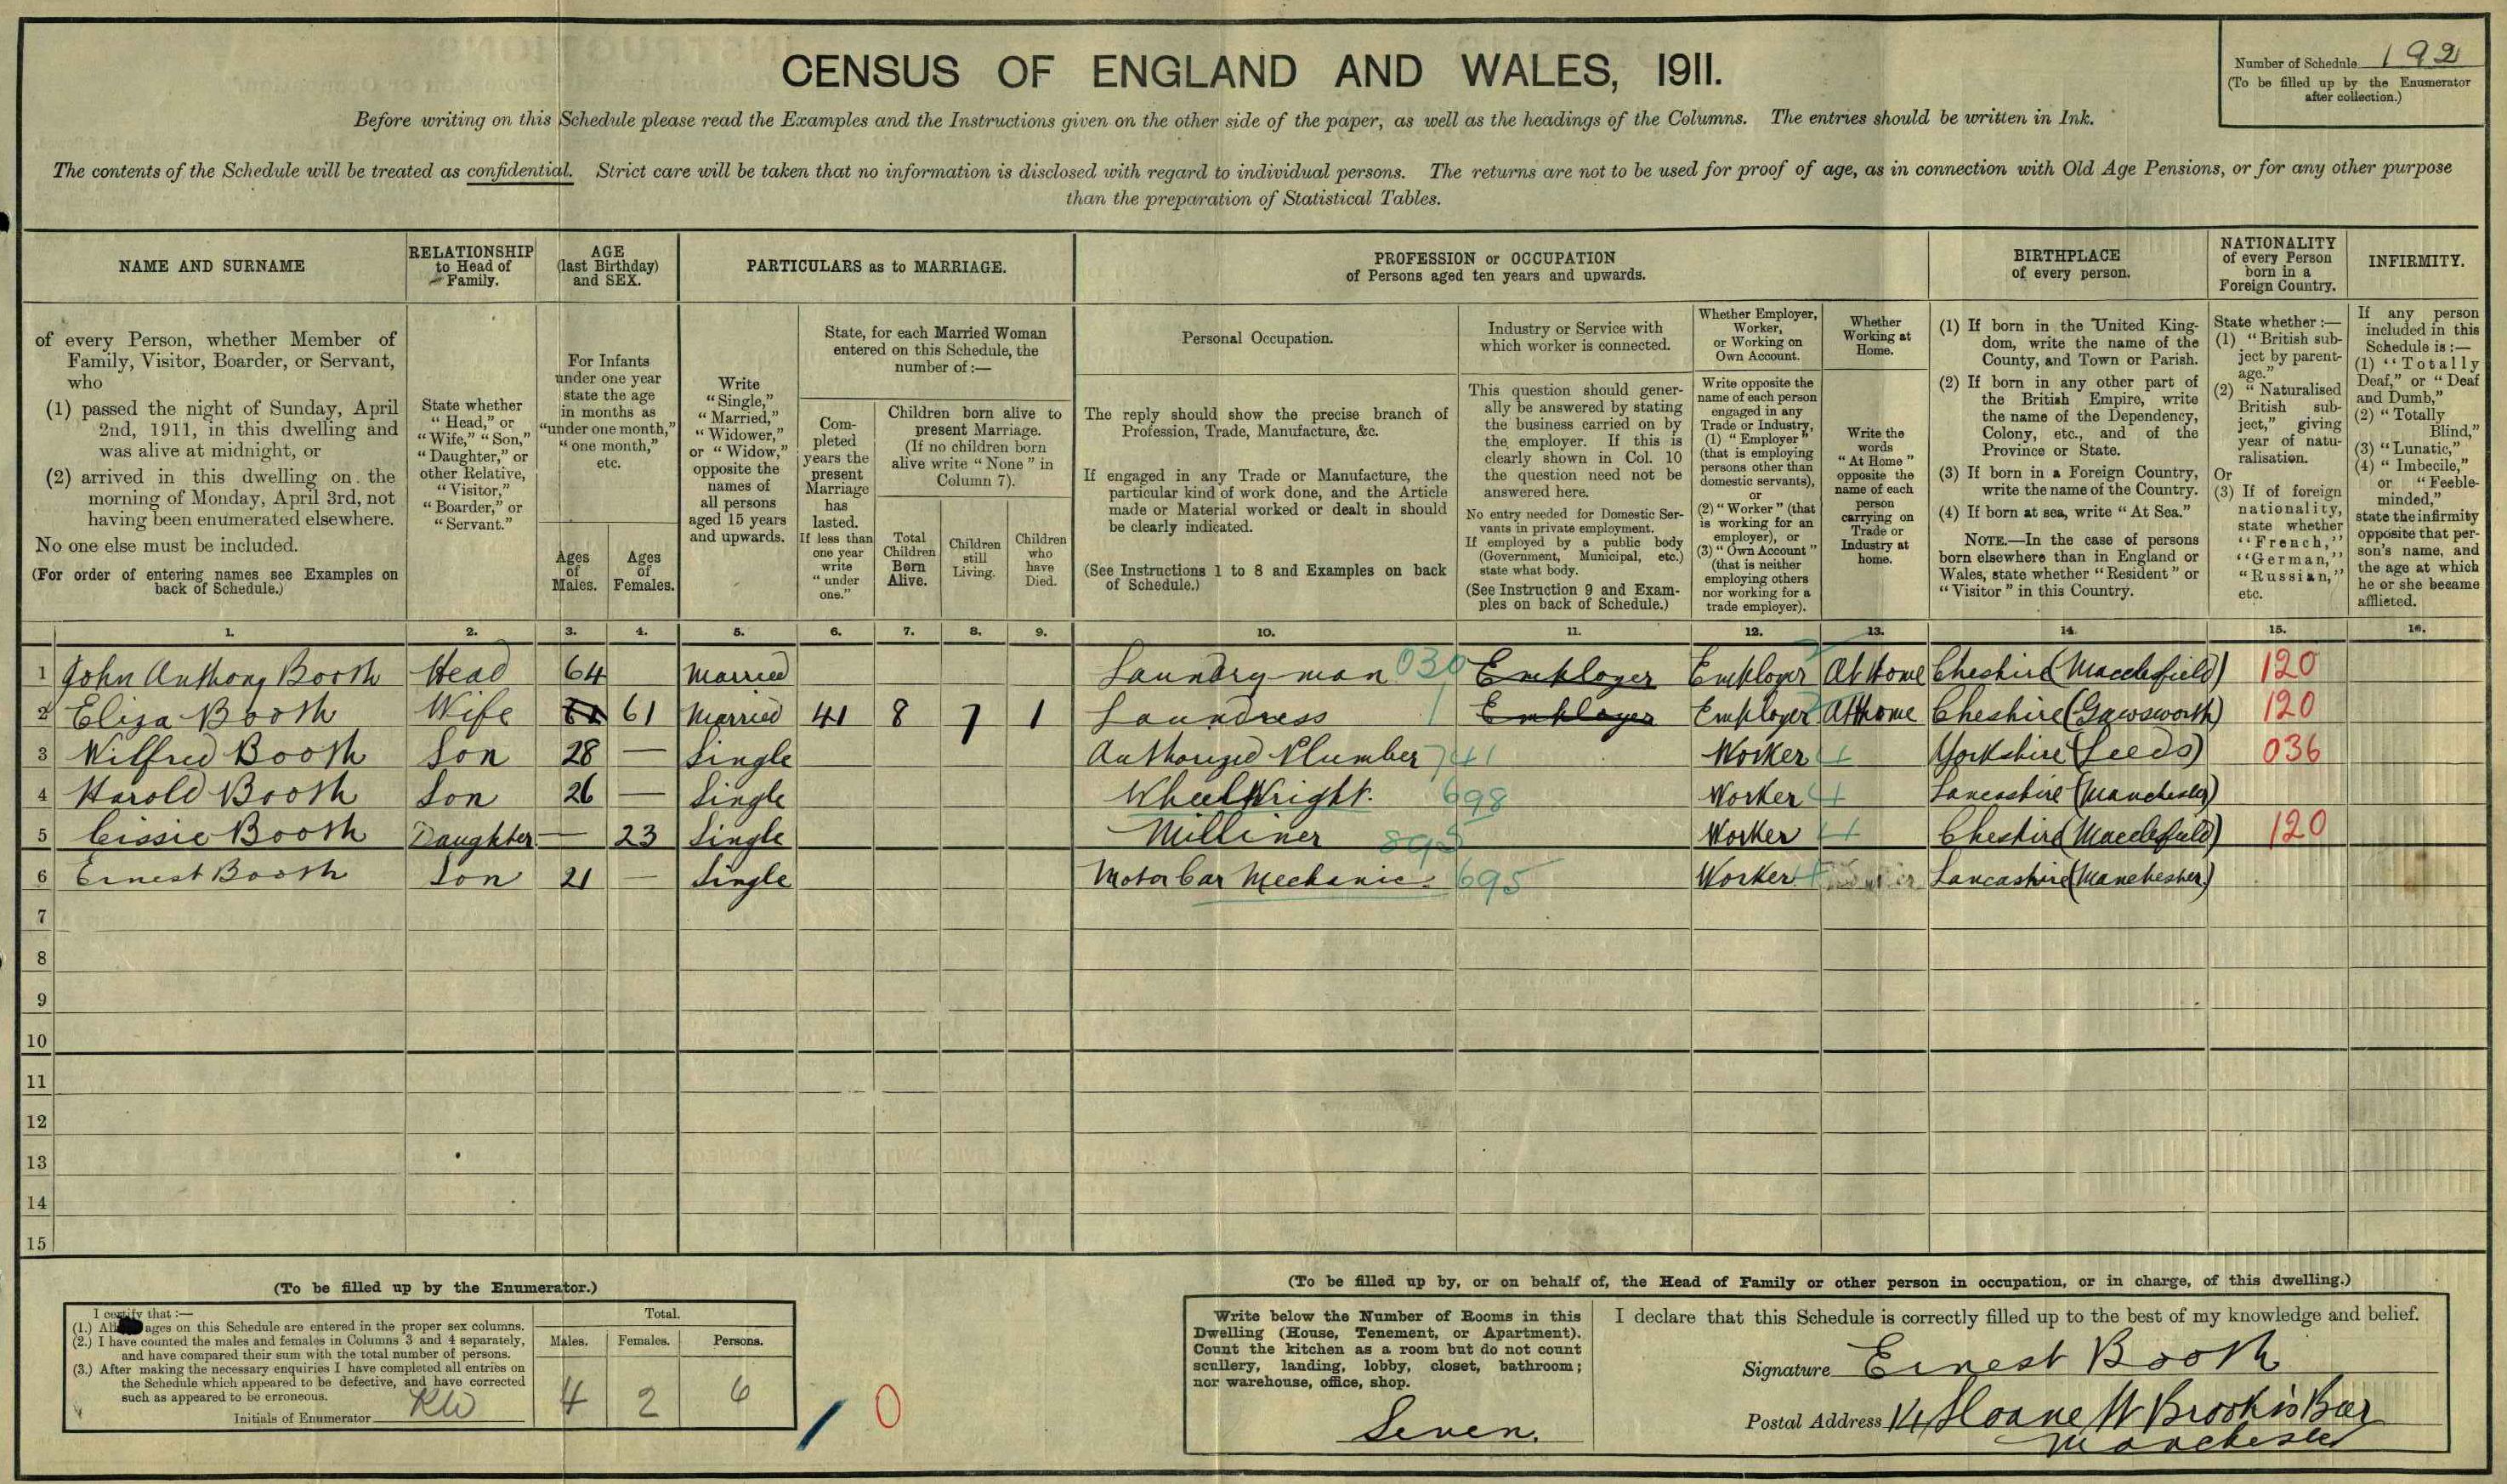 CENSUS OF ENGLAND AND WALES, 1911.
Number of Schedule 192
(To be filled up by the Enumerator
after collection.)
Before writing on this Schedule please read the Examples and the Instructions given on the other side of the paper, as well as the headings of the Columns. The entries should be written in Ink.
The contents of the Schedule will be treated as confidential. Strict care will be taken that no information is disclosed with regard to individual persons. The returns are not to be used for proof of age, as in connection with Old Age Pensions, or for any other purpose
than the preparation of Statistical Tables.
NAME AND SURNAME
of every Person, whether Member of
Family, Visitor, Boarder, or Servant,
who
(1) passed the night of Sunday, April
2nd, 1911, in this dwelling and
was alive at midnight, or
(2) arrived in this dwelling on the
morning of Monday, April 3rd, not
having been enumerated elsewhere.
No one else must be included.
(For order of entering names see Examples on
back of Schedule.)
RELATIONSHIP
to Head of
Family.
State whether
"Head," or
"Wife," "Son,"
"Daughter," or
other Relative,
"Visitor,"
"Boarder," or
"Servant."
AGE
(last Birthday)
and SEX.
For Infants
under one year
state the age
in months as
"under one month,"
"one month,"
etc.
Ages
of
Males.
Ages
of
Females.
PARTICULARS as to MARRIAGE.
Write
"Single,"
"Married,"
"Widower,"
or "Widow,"
opposite the
names of
all persons
aged 15 years
and upwards.
State, for each Married Woman
entered on this Schedule, the
number of:—
Com-
pleted
years the
present
Marriage
has
lasted.
If less than
one year
write
"under
one."
Children born alive to
present Marriage.
(If no children born
alive write "None" in
Column 7).
Total
Children
Born
Alive.
Children
still
Living.
Children
who
have
Died.
PROFESSION or OCCUPATION
of Persons aged ten years and upwards.
Personal Occupation.
The reply should show the precise branch of
Profession, Trade, Manufacture, &c.
If engaged in any Trade or Manufacture, the
particular kind of work done, and the Article
made or Material worked or dealt in should
be clearly indicated.
(See Instructions 1 to 8 and Examples on back
of Schedule.)
Industry or Service with
which worker is connected.
This question should gener-
ally be answered by stating
the business carried on by
the employer. If this is
clearly shown in Col. 10
the question need not be
answered here.
No entry needed for Domestic Ser-
vants in private employment.
If employed by a public body
(Government, Municipal, etc.)
state what body.
(See Instruction 9 and Exam-
ples on back of Schedule.)
Whether Employer,
Worker,
or Working on
Own Account.
Write opposite the
name of each person
engaged in any
Trade or Industry,
(1) "Employer"
(that is employing
persons other than
domestic servants),
or
(2) "Worker" (that
is working for an
employer), or
(3) "Own Account"
(that is neither
employing others
nor working for a
trade employer).
Whether
Working at
Home.
Write the
words
"At Home"
opposite the
name of each
person
carrying on
Trade or
Industry at
home.
BIRTHPLACE
of every person.
(1) If born in the United King-
dom, write the name of the
County, and Town or Parish.
(2) If born in any other part of
the British Empire, write
the name of the Dependency,
Colony, etc., and of the
Province or State.
(3) If born in a Foreign Country,
write the name of the Country.
(4) If born at sea, write "At Sea."
NOTE.—In the case of persons
born elsewhere than in England or
Wales, state whether "Resident" or
"Visitor" in this Country.
NATIONALITY
of every Person
born in a
Foreign Country.
State whether:—
(1) "British sub-
ject by parent-
age."
(2) "Naturalised
British sub-
ject," giving
year of natu-
ralisation.
Or
(3) If of foreign
nationality,
state whether
"French,"
"German,"
"Russian,"
etc.
INFIRMITY.
If any person
included in this
Schedule is:—
(1) "Totally
Deaf," or "Deaf
and Dumb,"
(2) "Totally
Blind,"
(3) "Lunatic,"
(4) "Imbecile,"
or "Feeble-
minded,"
state the infirmity
opposite that per-
son's name, and
the age at which
he or she became
afflicted.
1. 2. 3. 4. 5. 6. 7. 8. 9. 10. 11. 12. 13. 14. 15. 16.
1 John Anthony Booth Head 64 Married Laundryman 030 Employer Employer At Home Cheshire (Macclesfield) 120
2 Eliza Booth Wife 61 Married 41 8 7 1 Laundress Employer Employer At Home Cheshire (Gawsworth) 120
3 Wilfred Booth Son 28 — Single Authorized Plumber 741 Worker 4 Yorkshire (Leeds) 036
4 Harold Booth Son 26 — Single Wheelwright. 698 Worker 4 Lancashire (Manchester)
5 Cissie Booth Daughter — 23 Single Milliner 895 Worker 4 Cheshire (Macclesfield) 120
6 Ernest Booth Son 21 — Single Motor Car Mechanic. 695 Worker 4 Lancashire (Manchester)
7
8
9
10
11
12
13
14
15
(To be filled up by the Enumerator.)
I certify that:—
(1.) All ages on this Schedule are entered in the proper sex columns.
(2.) I have counted the males and females in Columns 3 and 4 separately,
and have compared their sum with the total number of persons.
(3.) After making the necessary enquiries I have completed all entries on
the Schedule which appeared to be defective, and have corrected
such as appeared to be erroneous.
Initials of Enumerator RW
Total.
Males. Females. Persons.
4 2 6
0
(To be filled up by, or on behalf of, the Head of Family or other person in occupation, or in charge, of this dwelling.)
Write below the Number of Rooms in this
Dwelling (House, Tenement, or Apartment).
Count the kitchen as a room but do not count
scullery, landing, lobby, closet, bathroom;
nor warehouse, office, shop.
Seven.
I declare that this Schedule is correctly filled up to the best of my knowledge and belief.
Signature Ernest Booth
Postal Address 14 Sloane St Brook's Bar
Manchester